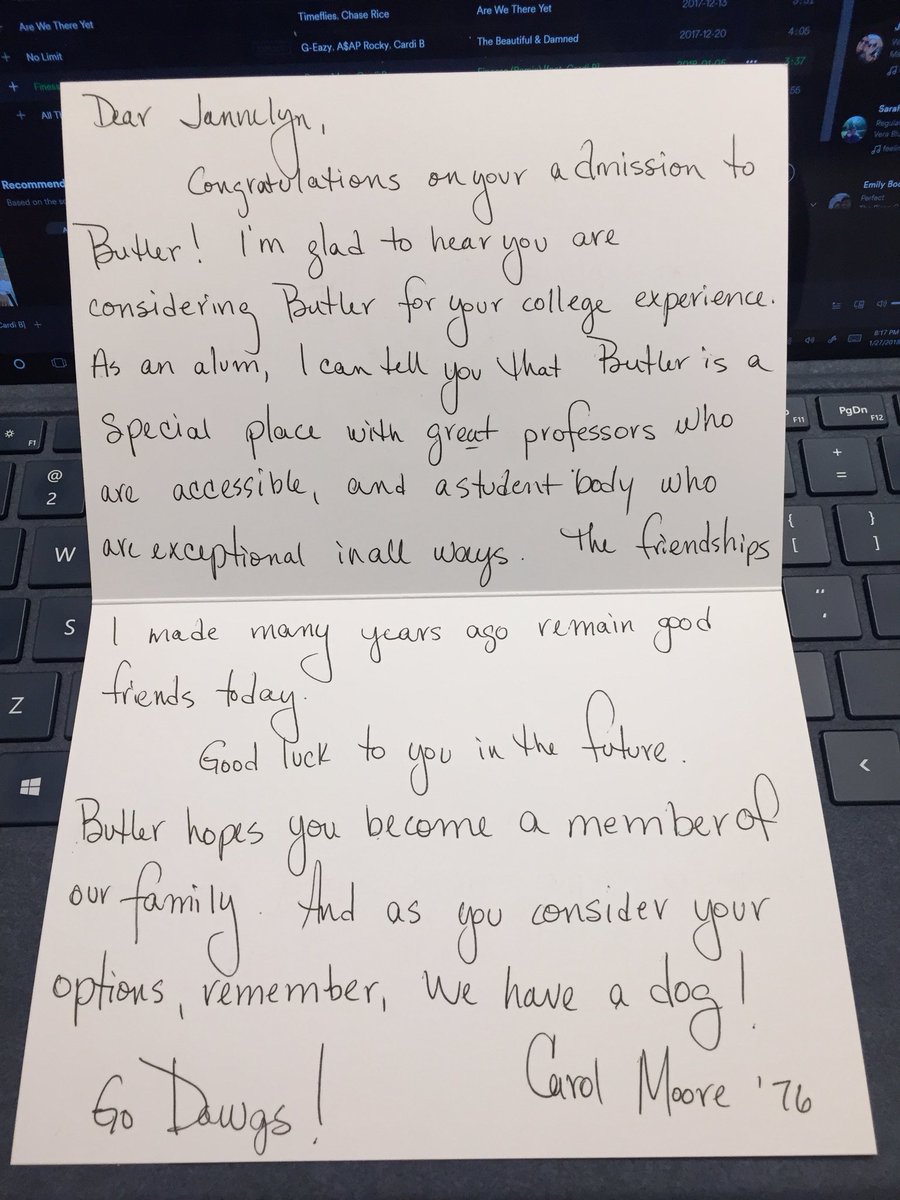 Are We There Yet
Timeflies, Chase Rice
Are We There Yet
2017-12-13
No Limit
G-Eazy, A$AP Rocky, Cardi B
The Beautiful & Damned
2017-12-20
4:05
All
Recommend
Based on the
Emily
Perfect
8:17 PM
Dear Jannelyn,
Congratulations on your admission to
Butler! I'm glad to hear you are
considering Butler for your college experience.
As an alum, I can tell you that Butler is a
special place with great professors who
are accessible, and a student body who
are exceptional in all ways. The friendships
I made many years ago remain good
friends today.
Good luck to you in the future.
Butler hopes you become a member of
our family. And as you consider your
options, remember, we have a dog!
Go Dawgs!
Carol Moore '76
F1
@
2
W
S
Z
F11
PgDn
F12
+
=
{
[
}
]
"
'
<